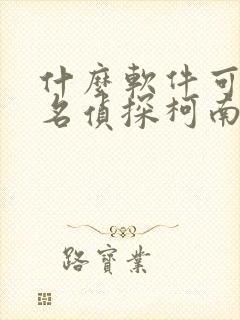 什麼軟件可
名偵探柯南
路寶業